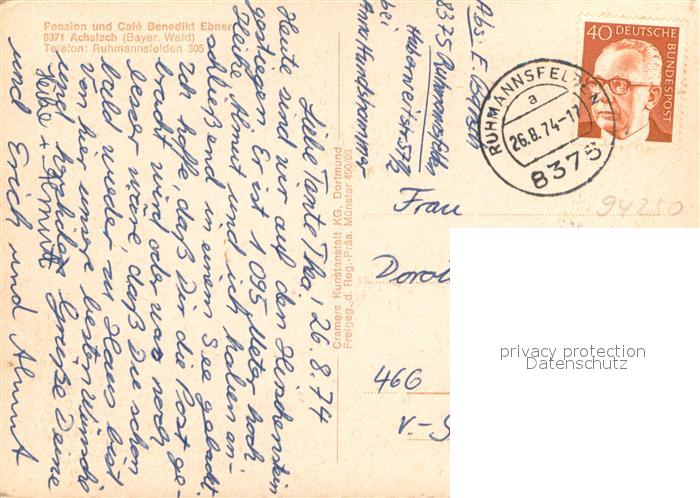 Pension und Café Benedikt Ebner
8371 Achslach (Bayer. Wald)
Telefon: Ruhmannsfelden 305
Liebe Tante Thea, 26.8.74
Heute sind wir auf den Hirschenstein
gestiegen. Er ist 1095 Meter hoch
Heike, Almut und ich haben an-
schließend in einem See gebadet.
Ich hoffe, daß Dir die Post ge-
bracht wird oder was noch
besser wäre daß Du schon
bald wieder zu Haus bist
Von hier immer beste Wünsche
und herzliche Grüße Deine
Heike + Almut
und Erich und Almut
Cramers Kunstanstalt KG, Dortmund
Freigeg. d. Reg.-Präs. Münster
Abs. E.
8375 Ruhmannsfelden
bei
40 DEUTSCHE BUNDESPOST
RUHMANNSFELDEN
a
26.8.74-17
8375
94250
Frau
466
V-S
privacy protection
Datenschutz